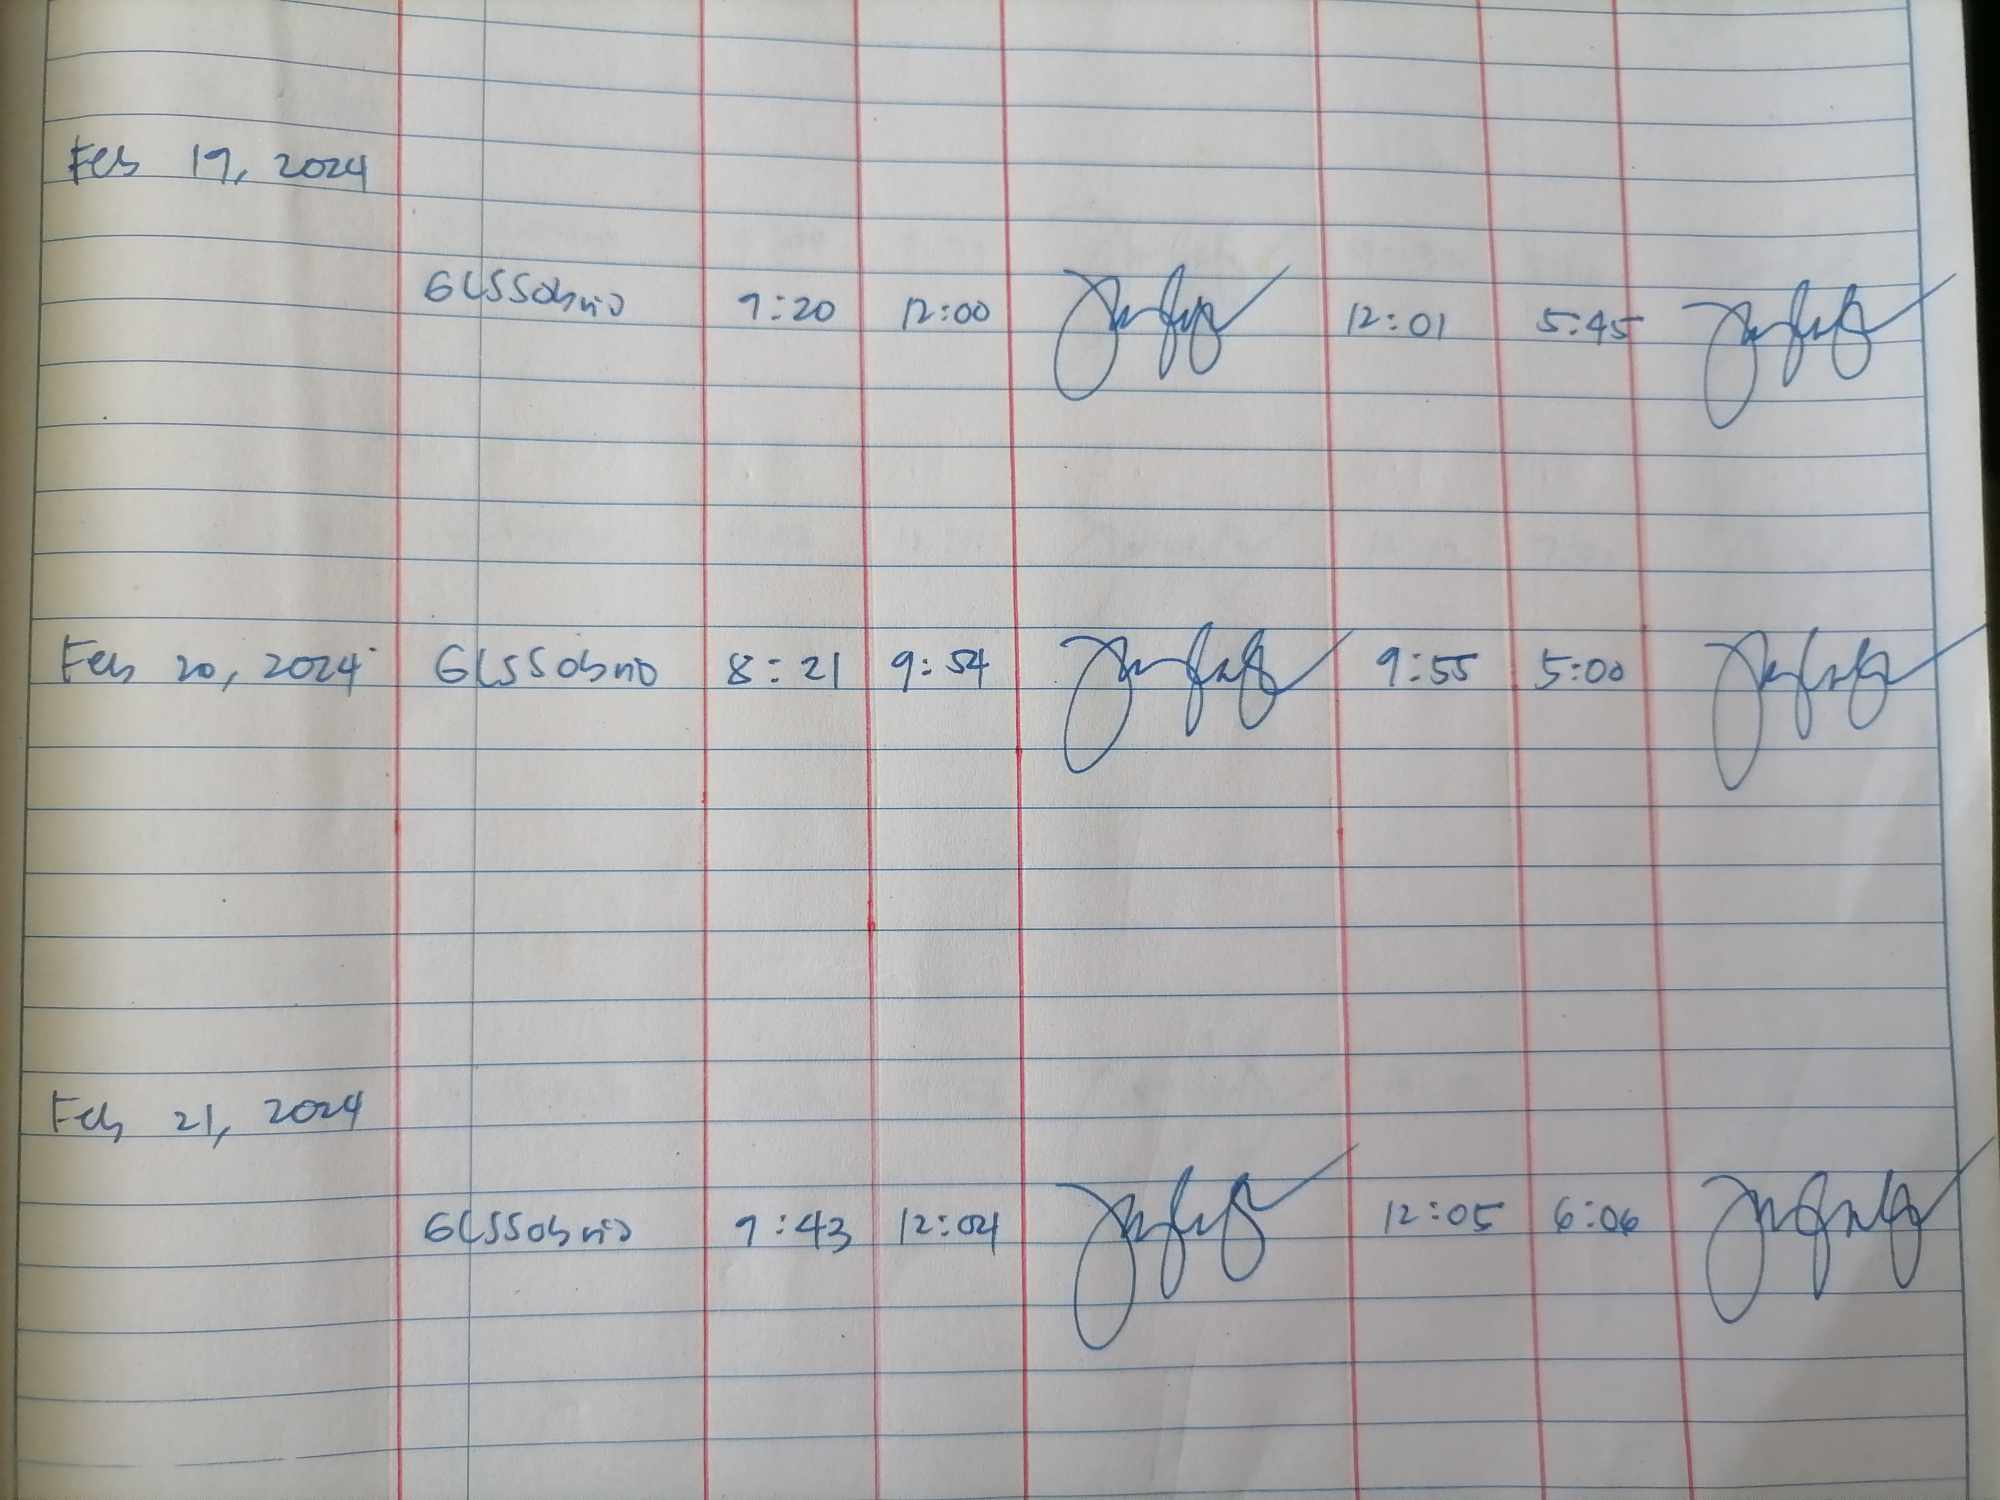 Feb 19, 2024
GLSSobrio 9:20 12:00 12:01 5:45
Feb 20, 2024 GLSSobrio 8:21 9:54 9:55 5:00
Feb 21, 2024
GLSSobrio 9:43 12:04 12:05 6:06